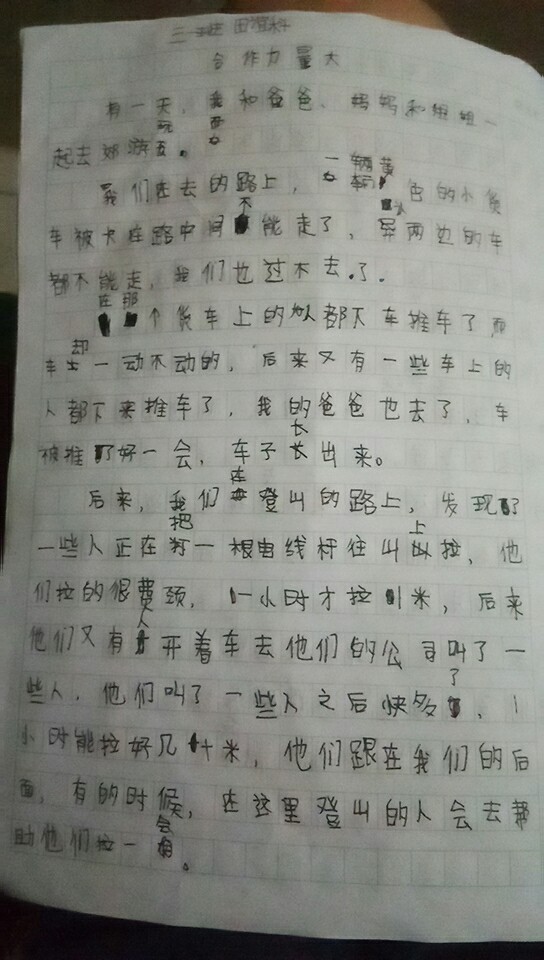 三班 田
合作力量大
有一天，我和爸爸、妈妈和姐姐一
起去郊游玩。
我们在去的路上，一辆黄色的小货
车被卡在路中间不能走了，导两边的车
都不能走，我们也过不去了。
在那个货车上的人都下车推车了而
车却一动不动的，后来又有一些车上的
人都下来推车了，我的爸爸也去了，车
被推了好一会，车子长出来。
后来，我们在登山的路上，发现了
一些人正在把一根电线杆往山上拉，他
们拉的很费颈，1小时才拉1米，后来
他们又有人开着车去他们的公司叫了一
些人，他们叫了一些人之后快多了，1
小时能拉好几十米，他们跟在我们的后
面，有的时候，在这里登山的人会去帮
助他们拉一会。